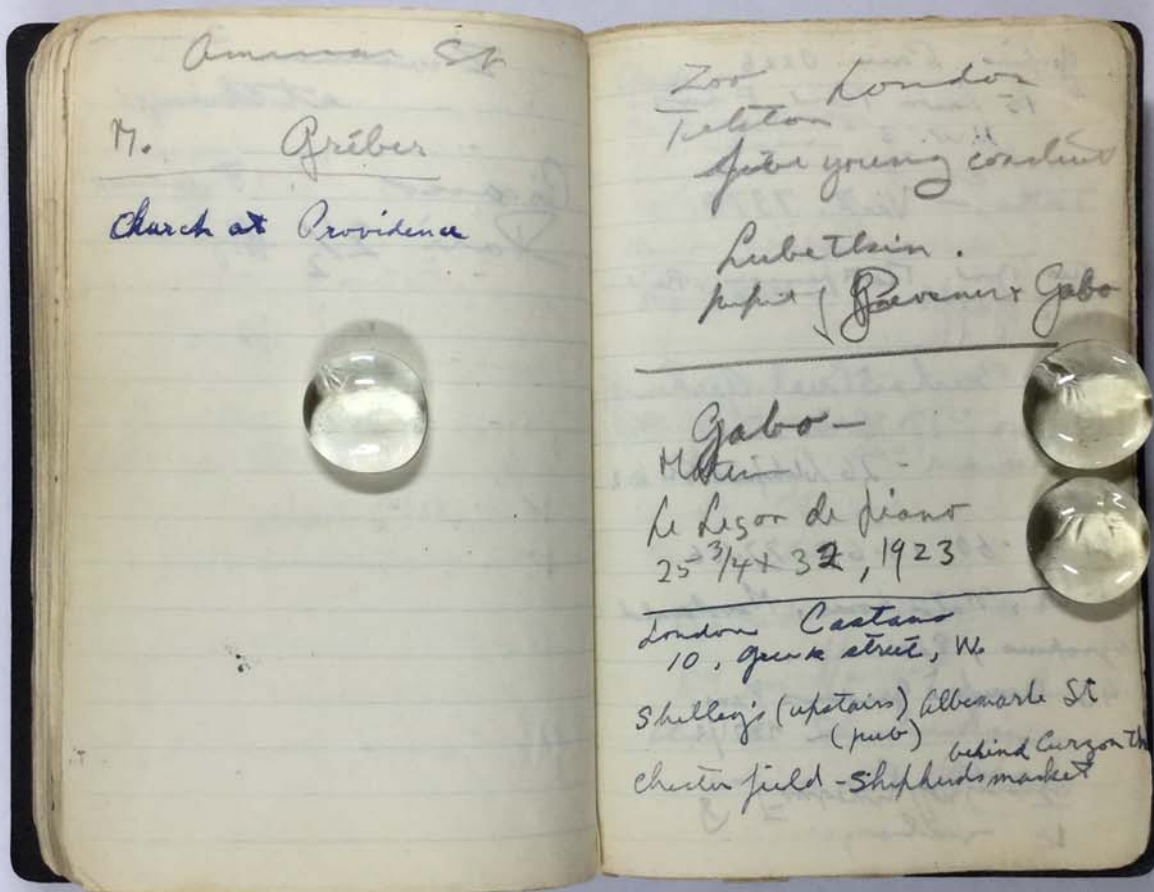 St
M. Gréber
Church at Providence
Zoo London
Telston
five young
Lubetkin.
pupil of Pevsner & Gabo
Gabo —
Le Leçon de piano
25 3/4 x 32, 1923
London Castano
10, Greek street, W.
Shelley's (upstairs) Albemarle St
(pub)
behind Curzon Th
Chesterfield - Shepherds market